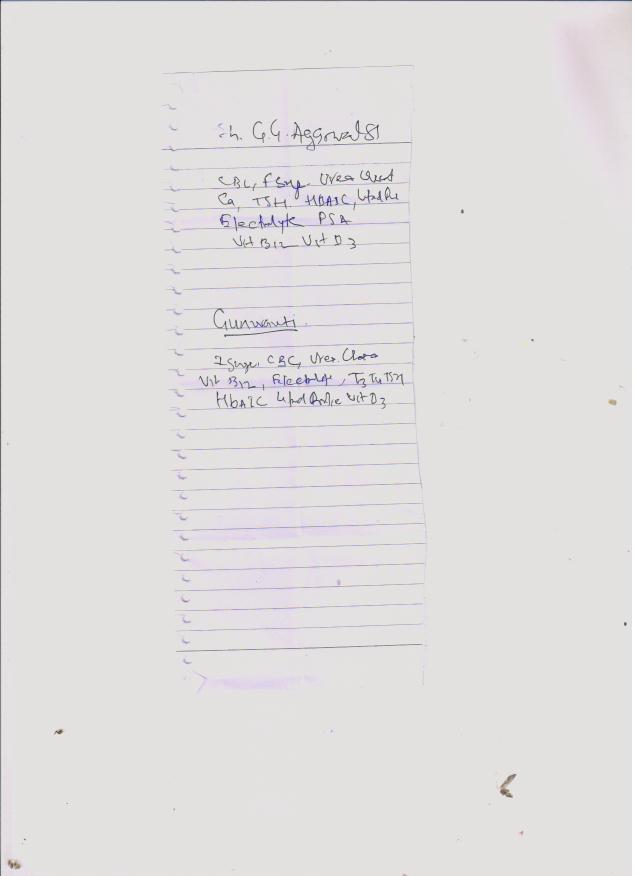 Sh. G.G. Aggarwal
CBC, F Sug. Urea Creat
Ca, TSH HBA1C, Lipid
Electrolyte PSA
Vit B12 Vit D3
Gunwanti
CBC, Urea.
Vit B12, Electrolyte, T3 T4 TSH
HbA1C Lipid Profile Vit D3